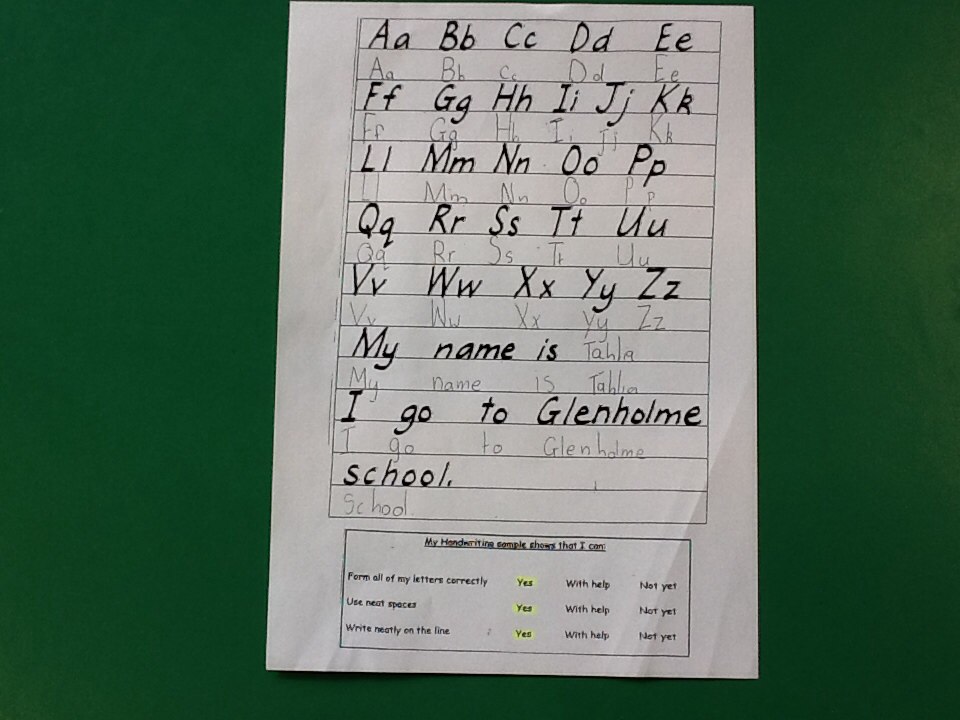 Aa Bb Cc Dd Ee
Aa Bb Cc Dd Ee
Ff Gg Hh Ii Jj Kk
Ff Gg Hh Ii Jj Kk
Ll Mm Nn Oo Pp
Ll Mm Nn Oo Pp
Qq Rr Ss Tt Uu
Qq Rr Ss Tt Uu
Vv Ww Xx Yy Zz
Vv Ww Xx Yy Zz
My name is Tahlia
My name is Tahlia
I go to Glenholme
I go to Glenholme
school.
School
My Handwriting sample shows that I can:
Form all of my letters correctly Yes With help Not yet
Use neat spaces Yes With help Not yet
Write neatly on the line Yes With help Not yet